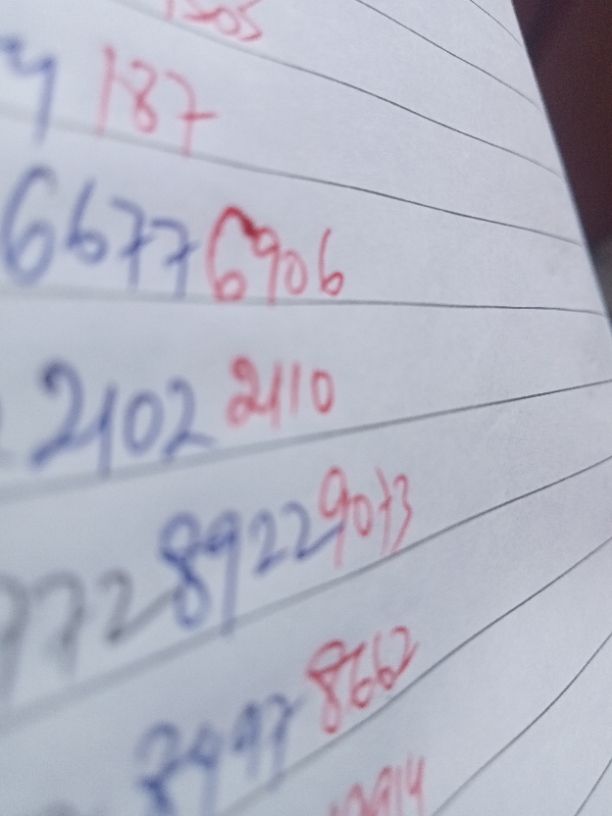 187
6677 6906
2102 2110
772 8922 9073
8497 8662